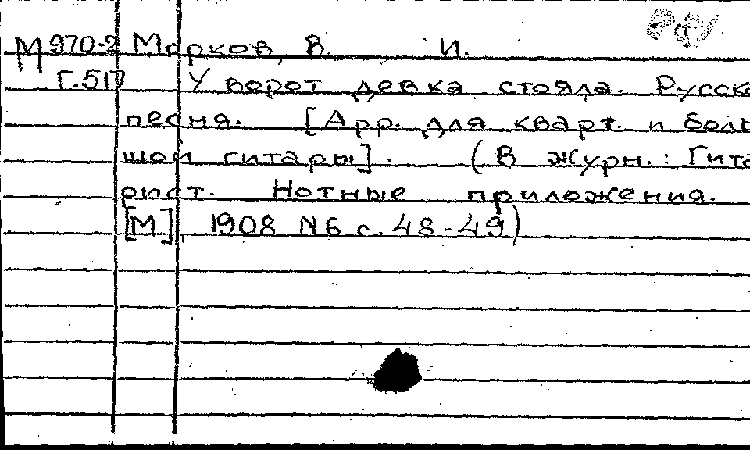 М 970-2 Марков, В. И.
Г.517 У ворот девка стояла. Русска
песня. [Арр. для кварт. и боль
шой гитары]. (В журн.: Гита
рист. Нотные приложения.
[М], 1908 N 6 с. 48-49)